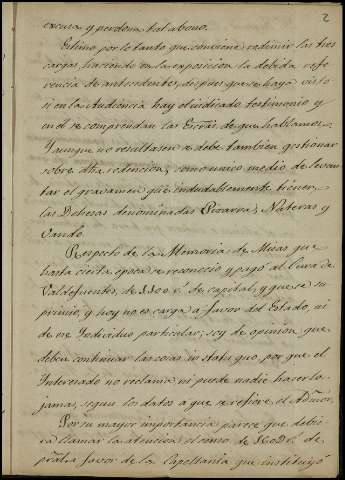 2
excusa y perdona tal abono.
Estimo por lo tanto que conviene redimir las tres
cargas, haciendo en la exposicion la debida refe
rencia de antecedentes, despues que se haya visto
si en la Audiencia hay el indicado testimonio y
en el se comprendan las Escras. de que hablamos.
Y aunque no resultasen se debe tambien gestionar
sobre dha redencion, como unico medio de levan
tar el gravamen que indudablemente tienen
las Dehesas denominadas Pizarra, Nateras y
Cando.
Respecto de la Memoria de Misas que
hasta cierta epoca se reconoció y pagó al Cura de
Valdefuentes, de 1100 rs. de capital, y que se su
primió, y hoy no es carga a favor del Estado, ni
de ese Individuo particular; soy de opinion que
deben continuar las cosas in statu quo por que el
Interesado no reclama ni puede nadie hacerlo
jamas, segun los datos a que se refiere el Admor.
Por su mayor importancia parece que debie
ra llamar la atencion el censo de 1602 rs. de
pral. a favor de la Capellania que instituyó